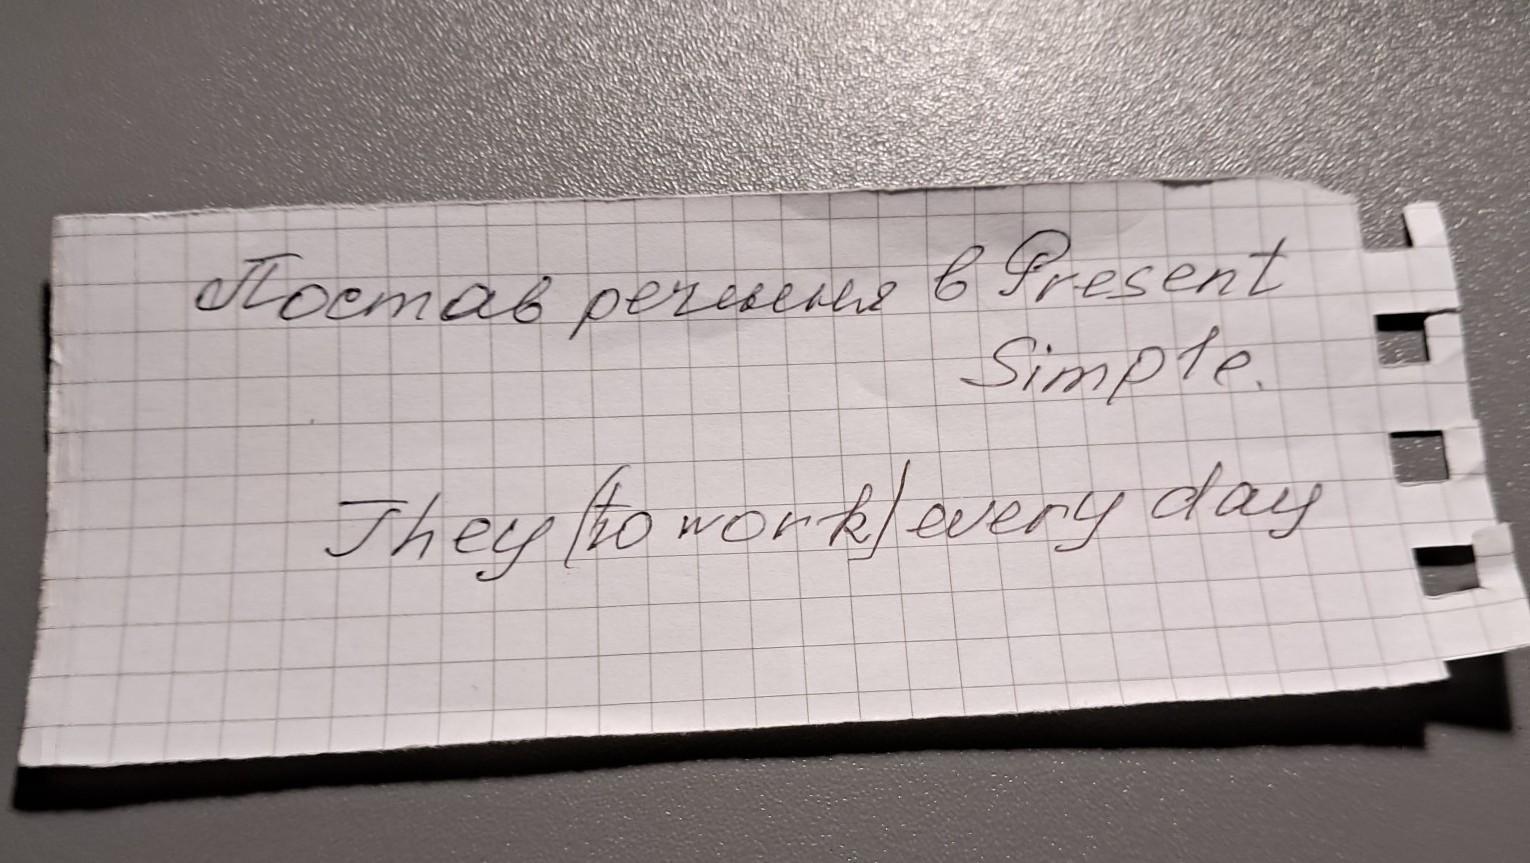 Постав речення в Present
Simple.
They (to work) every day